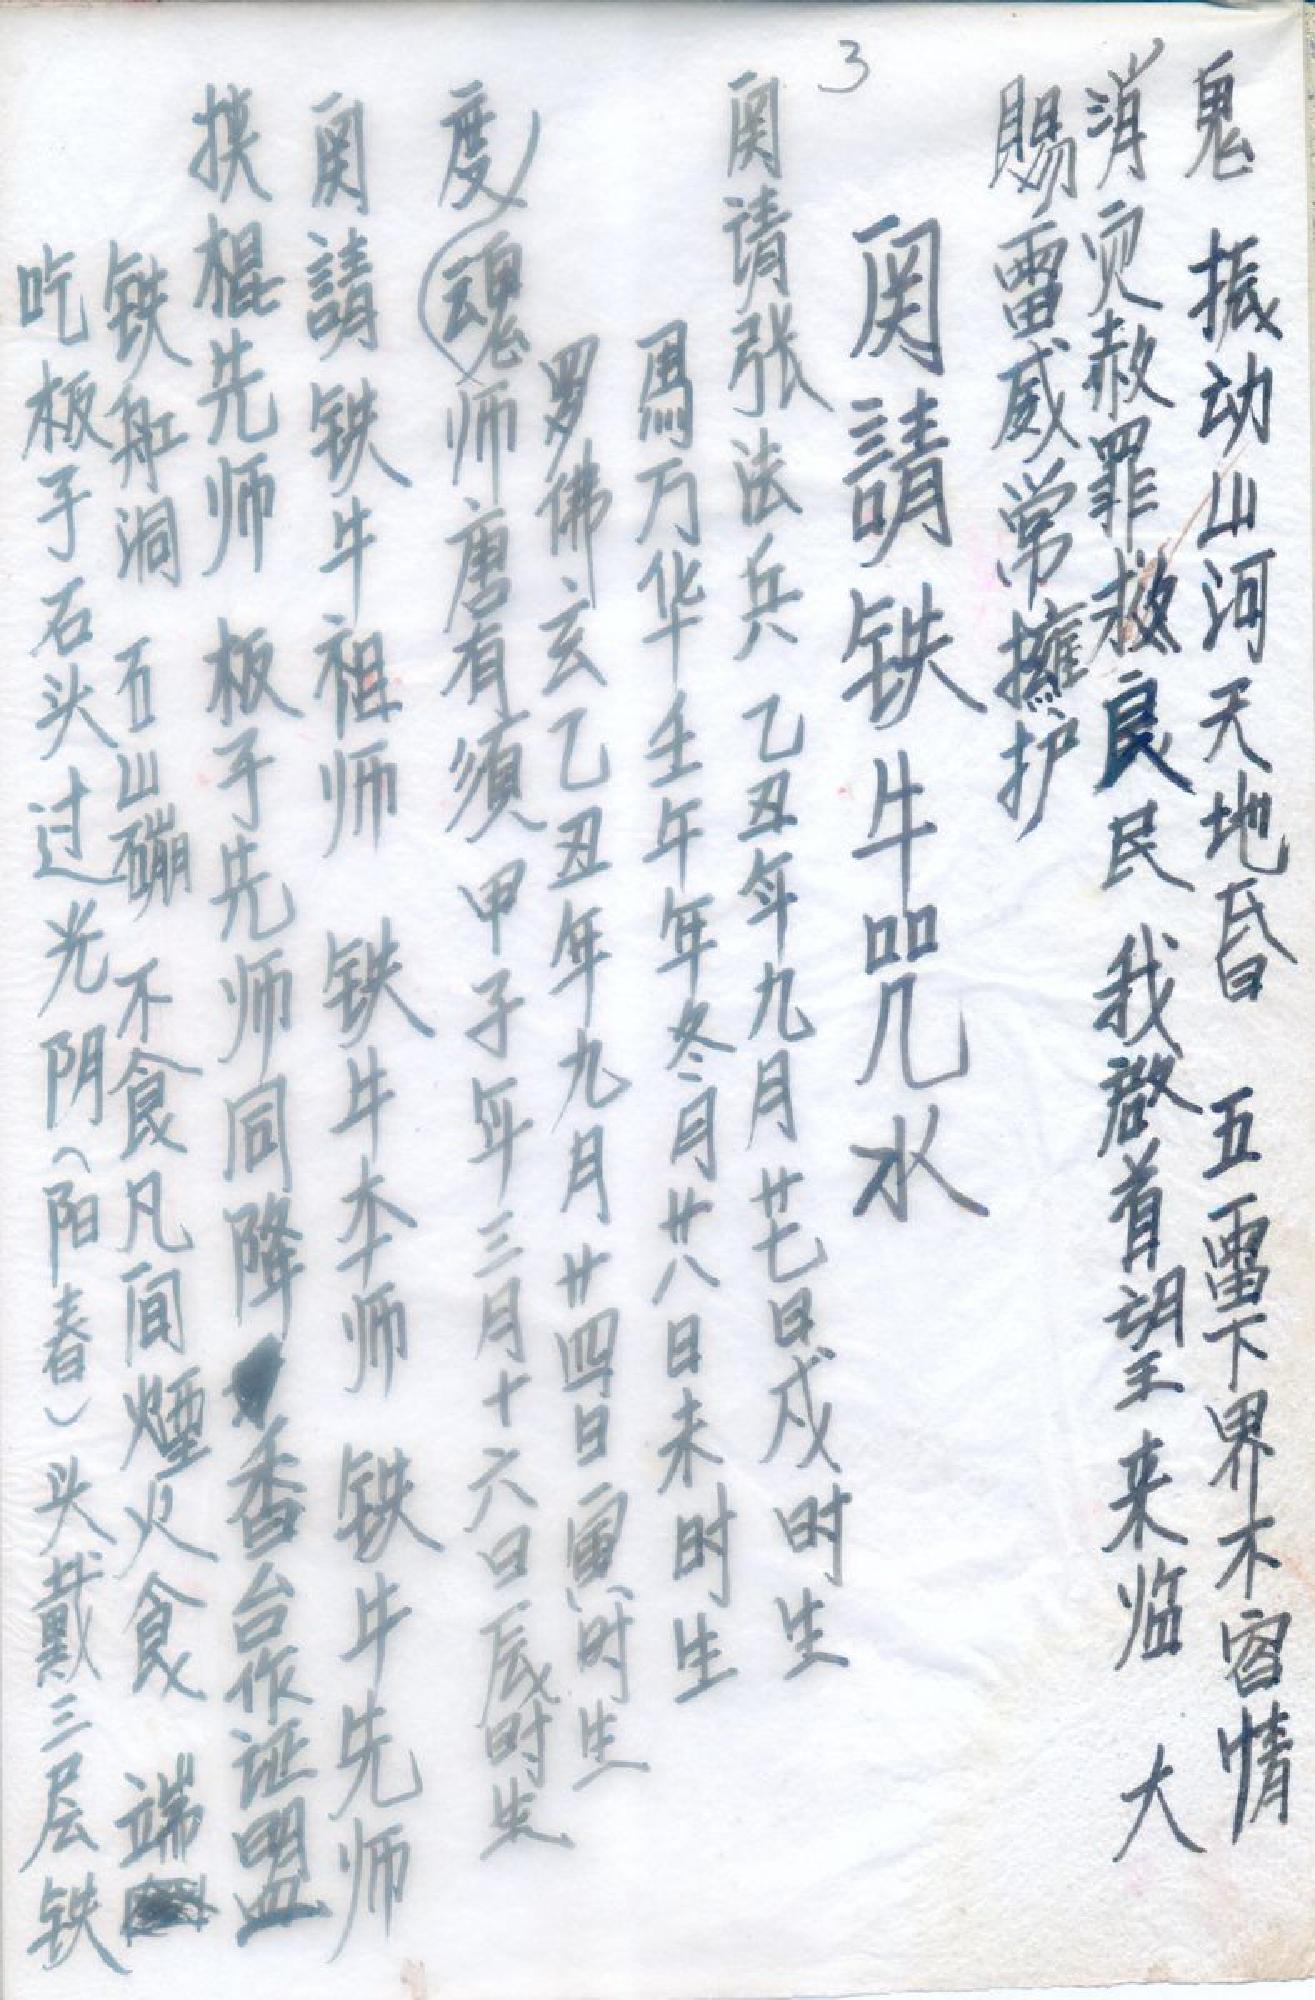 鬼 振动山河天地昏 五雷下界不容情
消灾赦罪救良民 我啓首望来临 大
賜雷威常擁护
3
関請铁牛咒水
関请张法兵 乙丑年九月廿七日戌时生
馬万华壬午年冬月廿八日未时生
罗佛玄乙丑年九月廿四日寅时生
度魂师唐有须甲子年三月十六日辰时生
関請铁牛祖师 铁牛本师 铁牛先师
挟棍先师 板子先师同降香台作证盟
铁舡洞 石山磞 不食凡间煙火食 端
吃板子石头过光阴(阳春)头戴三层铁